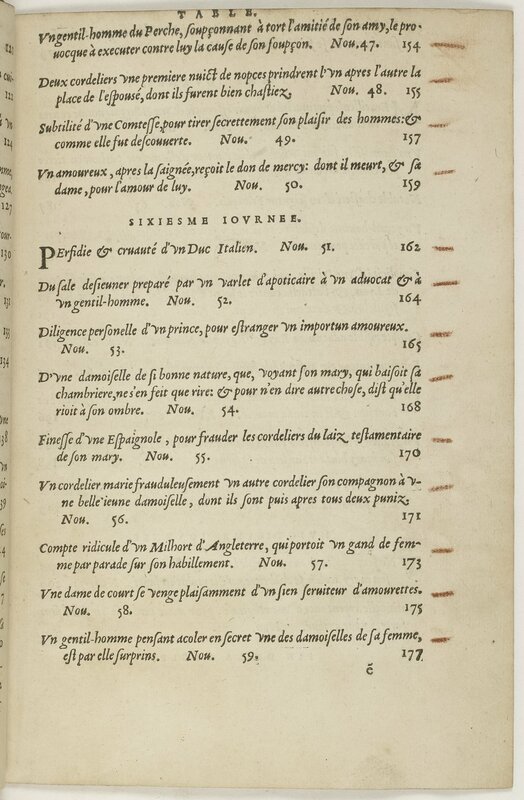 TABLE.
Vn gentil-homme du Perche, soupçonnant à tort l'amitié de son amy, le pro-
uocque à executer contre luy la cause de son soupçon. Nou. 47. 154
Deux cordeliers vne premiere nuict de nopces prindrent l'vn apres l'autre la
place de l'espousé, dont ils furent bien chastiez. Nou. 48. 155
Subtilité d'vne Comtesse, pour tirer secrettement son plaisir des hommes: &
comme elle fut descouuerte. Nou. 49. 157
Vn amoureux, apres la saignée, reçoit le don de mercy: dont il meurt, & sa
dame, pour l'amour de luy. Nou. 50. 159
SIXIESME IOVRNEE.
PErfidie & cruauté d'vn Duc Italien. Nou. 51. 162
Du sale desieuner preparé par vn varlet d'apoticaire à vn aduocat & à
vn gentil-homme. Nou. 52. 164
Diligence personelle d'vn prince, pour estranger vn importun amoureux.
Nou. 53. 165
D'vne damoiselle de si bonne nature, que, voyant son mary, qui baisoit sa
chambriere, ne s'en feit que rire: & pour n'en dire autre chose, dist qu'elle
rioit à son ombre. Nou. 54. 168
Finesse d'vne Espaignole, pour frauder les cordeliers du laiz testamentaire
de son mary. Nou. 55. 170
Vn cordelier marie frauduleusement vn autre cordelier son compagnon à v-
ne belle ieune damoiselle, dont ils sont puis apres tous deux puniz.
Nou. 56. 171
Compte ridicule d'vn Milhort d'Angleterre, qui portoit vn gand de fem-
me par parade sur son habillement. Nou. 57. 173
Vne dame de court se venge plaisamment d'vn sien seruiteur d'amourettes.
Nou. 58. 175
Vn gentil-homme pensant acoler en secret vne des damoiselles de sa femme,
est par elle surprins. Nou. 59. 177
ẽ